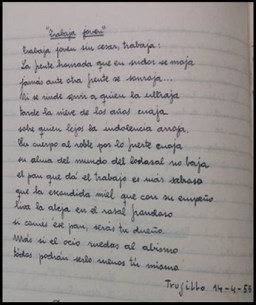 "trabaja joven"
trabaja joven sin cesar, trabaja:
La frente honrada que en sudor se moja
jamás ante otra frente se sonroja
Ni se rinde servil a quien la ultraja
tarde la nieve de los años cuaja
sobe quien lejos la indolencia arroja
Su cuerpo al roble por lo fuerte enoja
su alma del mundo del lodazal no baja
el pan que dá el trabajo es más sabroso
que la escondida miel que con su empeño
liva la aleja en el rosal frondoso
si comes ese pan, serás tu dueño
Más si el ocio ruedas al abismo
todos podrán serlo menos tú mismo
Trujillo 14-4-58